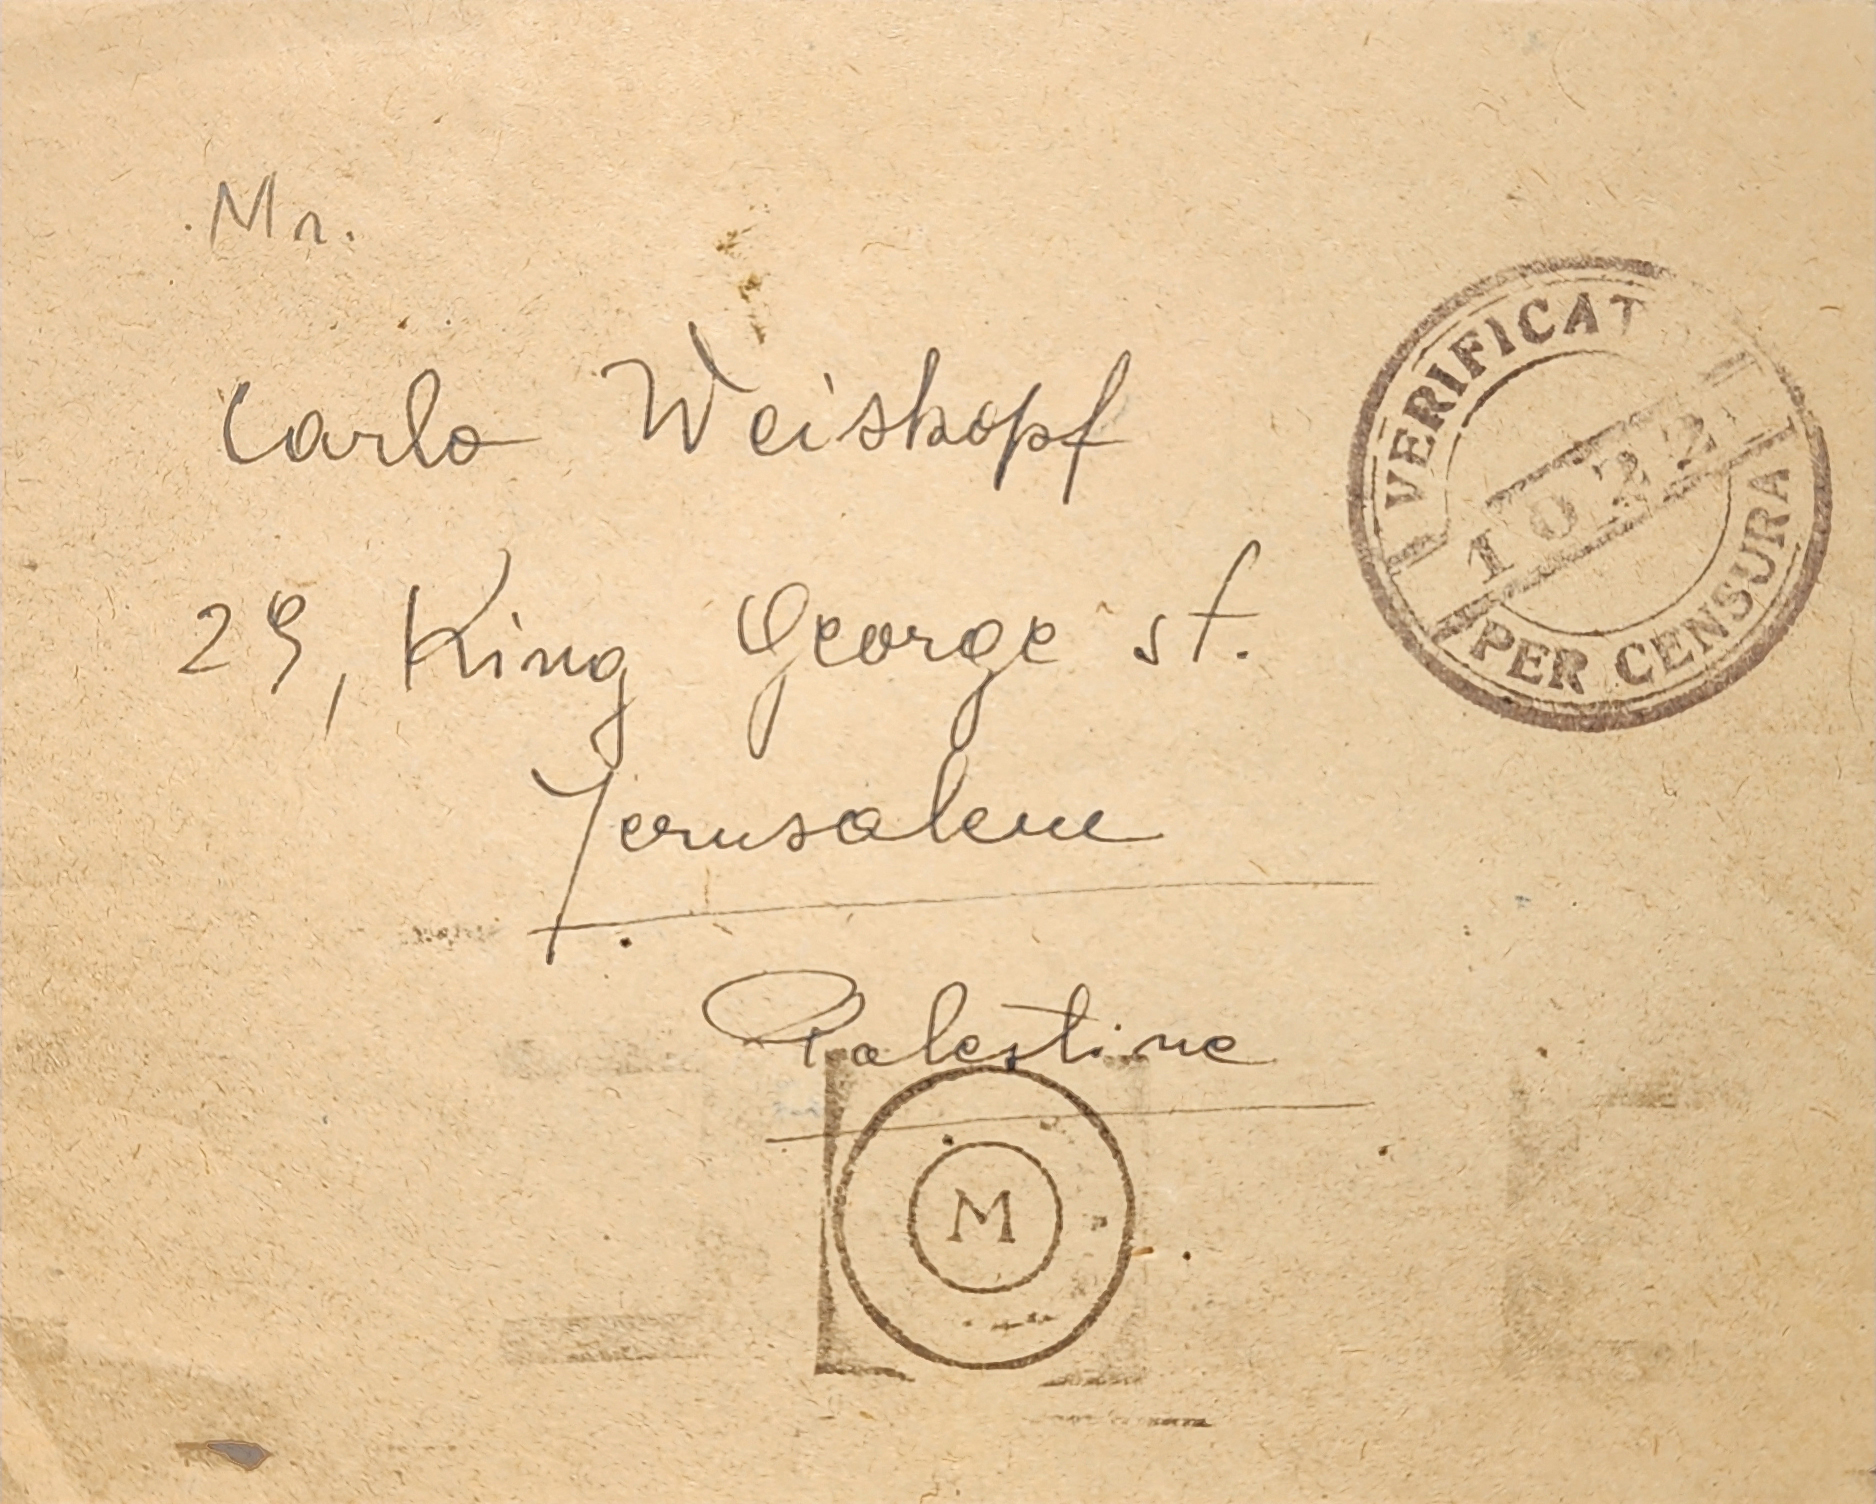 Mr.
Carlo Weiskopf
29, King George st.
Jerusalem
Palestine
VERIFICAT
1022
PER CENSURA
M